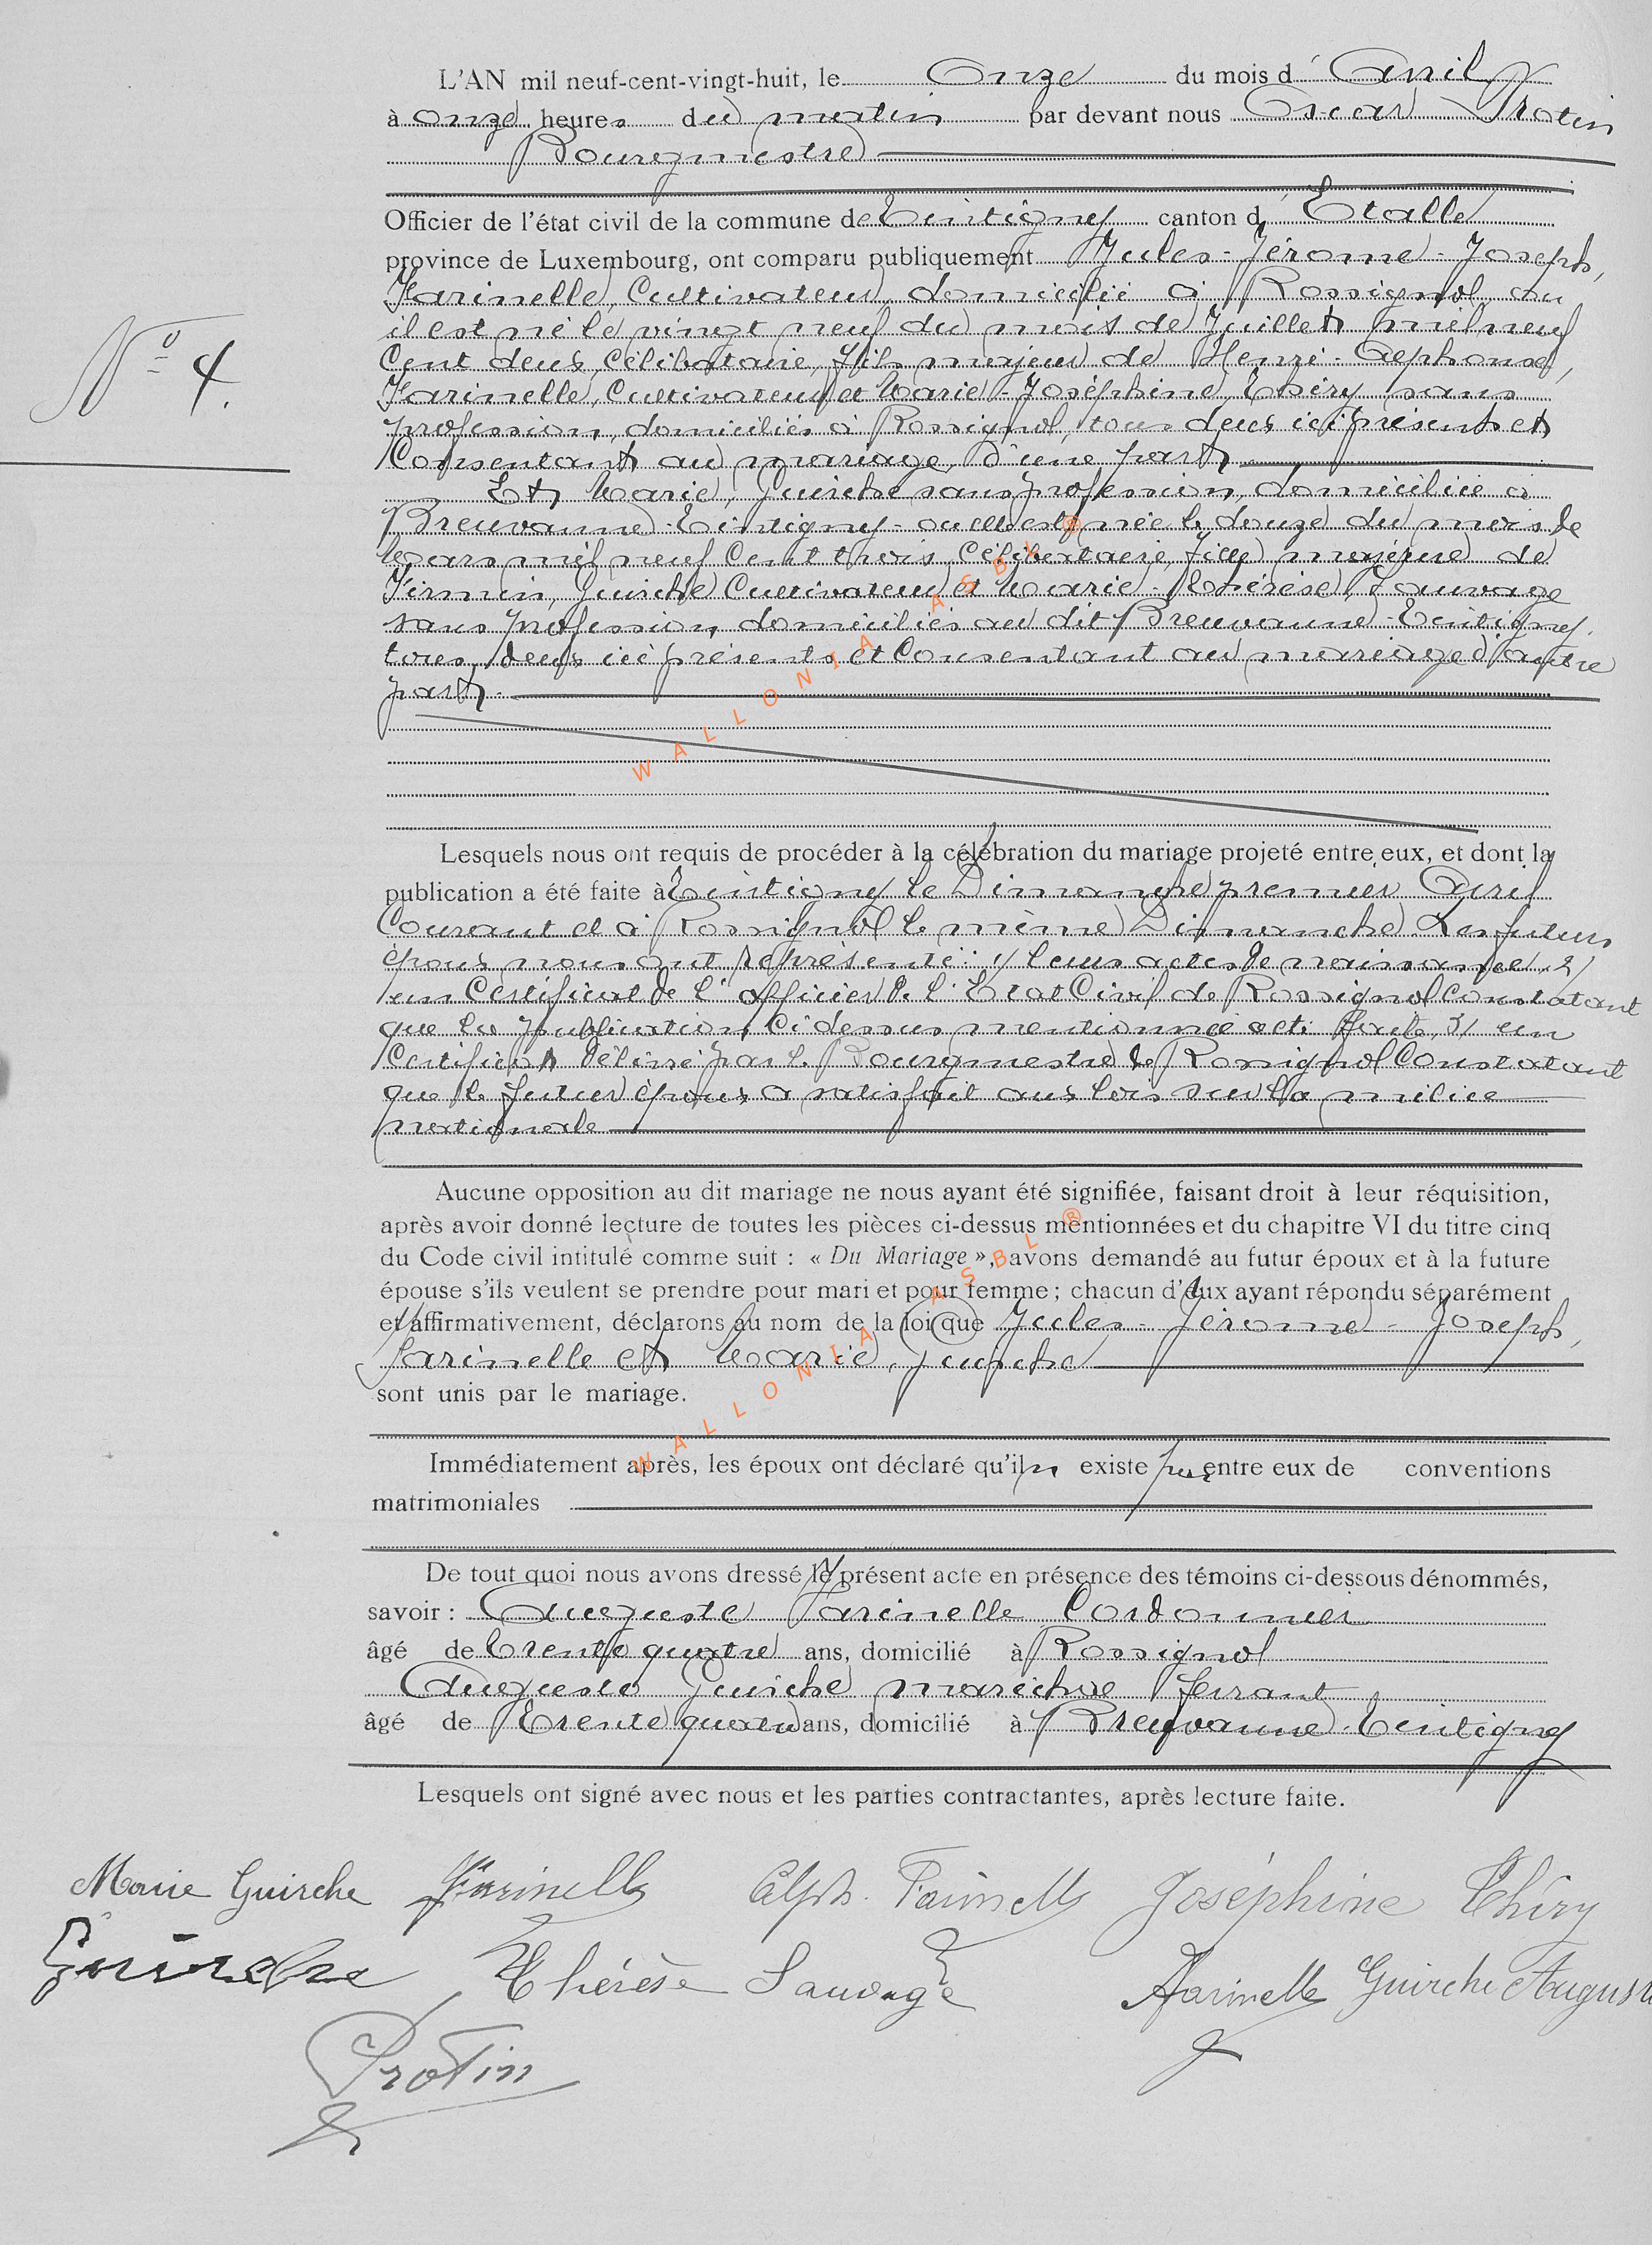 L'AN mil neuf-cent-vingt-huit, le Onze du mois d'Avril
à onze heures du matin par devant nous Oscar Protin
Bourgmestre
Officier de l'état civil de la commune de Tintigny canton d'Etalle
province de Luxembourg, ont comparu publiquement Jules-Jérome-Joseph,
Farinelle, Cultivateur, domicilié à Rossignol, ou
il est né le vingt neuf du mois de Juillet mil neuf
Cent deux, Célibataire, fils majeur de Henri-Alphonse,
Farinelle, Cultivateur et Marie-Joséphine, Thiry sans
profession, domiciliés à Rossignol, tous deux ici présents et
Consentant au mariage, d'une part
N° 4.
Et Marie, Guirche sans profession, domiciliée à
Breuvanne-Tintigny-ou elle est née le douze du mois de
Mars mil neuf Cent trois, Célibataire, fille majeure de
Firmin, Guirche Cultivateur et Marie-Thérèse, Sauvage
sans profession, domiciliés au dit Breuvanne-Tintigny.
tous deux ici présents et Consentant au mariage d'autre
part.
WALLONIA ASBL ®
Lesquels nous ont requis de procéder à la célébration du mariage projeté entre eux, et dont la
publication a été faite à Tintigny le Dimanche premier Avril
Courant et à Rossignol le même Dimanche. Les futurs
époux nous ont représenté: 1/ leurs actes de naissance, 2/
un Certificat de l'officier de l'Etat Civil de Rossignol Constatant
que la publication Ci dessus mentionnée a été faite, 3/ un
Certificat délivré par le Bourgmestre de Rossignol Constatant
que le futur époux a satisfait aux lois sur la milice
nationale
Aucune opposition au dit mariage ne nous ayant été signifiée, faisant droit à leur réquisition,
après avoir donné lecture de toutes les pièces ci-dessus mentionnées et du chapitre VI du titre cinq
du Code civil intitulé comme suit : « Du Mariage », avons demandé au futur époux et à la future
épouse s'ils veulent se prendre pour mari et pour femme ; chacun d'eux ayant répondu séparément
et affirmativement, déclarons au nom de la loi que Jules-Jérome-Joseph,
Farinelle et Marie, Guirche
sont unis par le mariage.
WALLONIA ASBL ®
Immédiatement après, les époux ont déclaré qu'il n existe pas entre eux de conventions
matrimoniales
De tout quoi nous avons dressé le présent acte en présence des témoins ci-dessous dénommés,
savoir : Auguste Farinelle Cordonnier
âgé de Trente quatre ans, domicilié à Rossignol
Auguste Guirche maréchal ferrant
âgé de Trente quatre ans, domicilié à Breuvanne-Tintigny
Lesquels ont signé avec nous et les parties contractantes, après lecture faite.
Marie Guirche Farinelle Alph. Farinelle Joséphine Thiry
Guirche Thérèse Sauvage Farinelle Guirche August
Protin